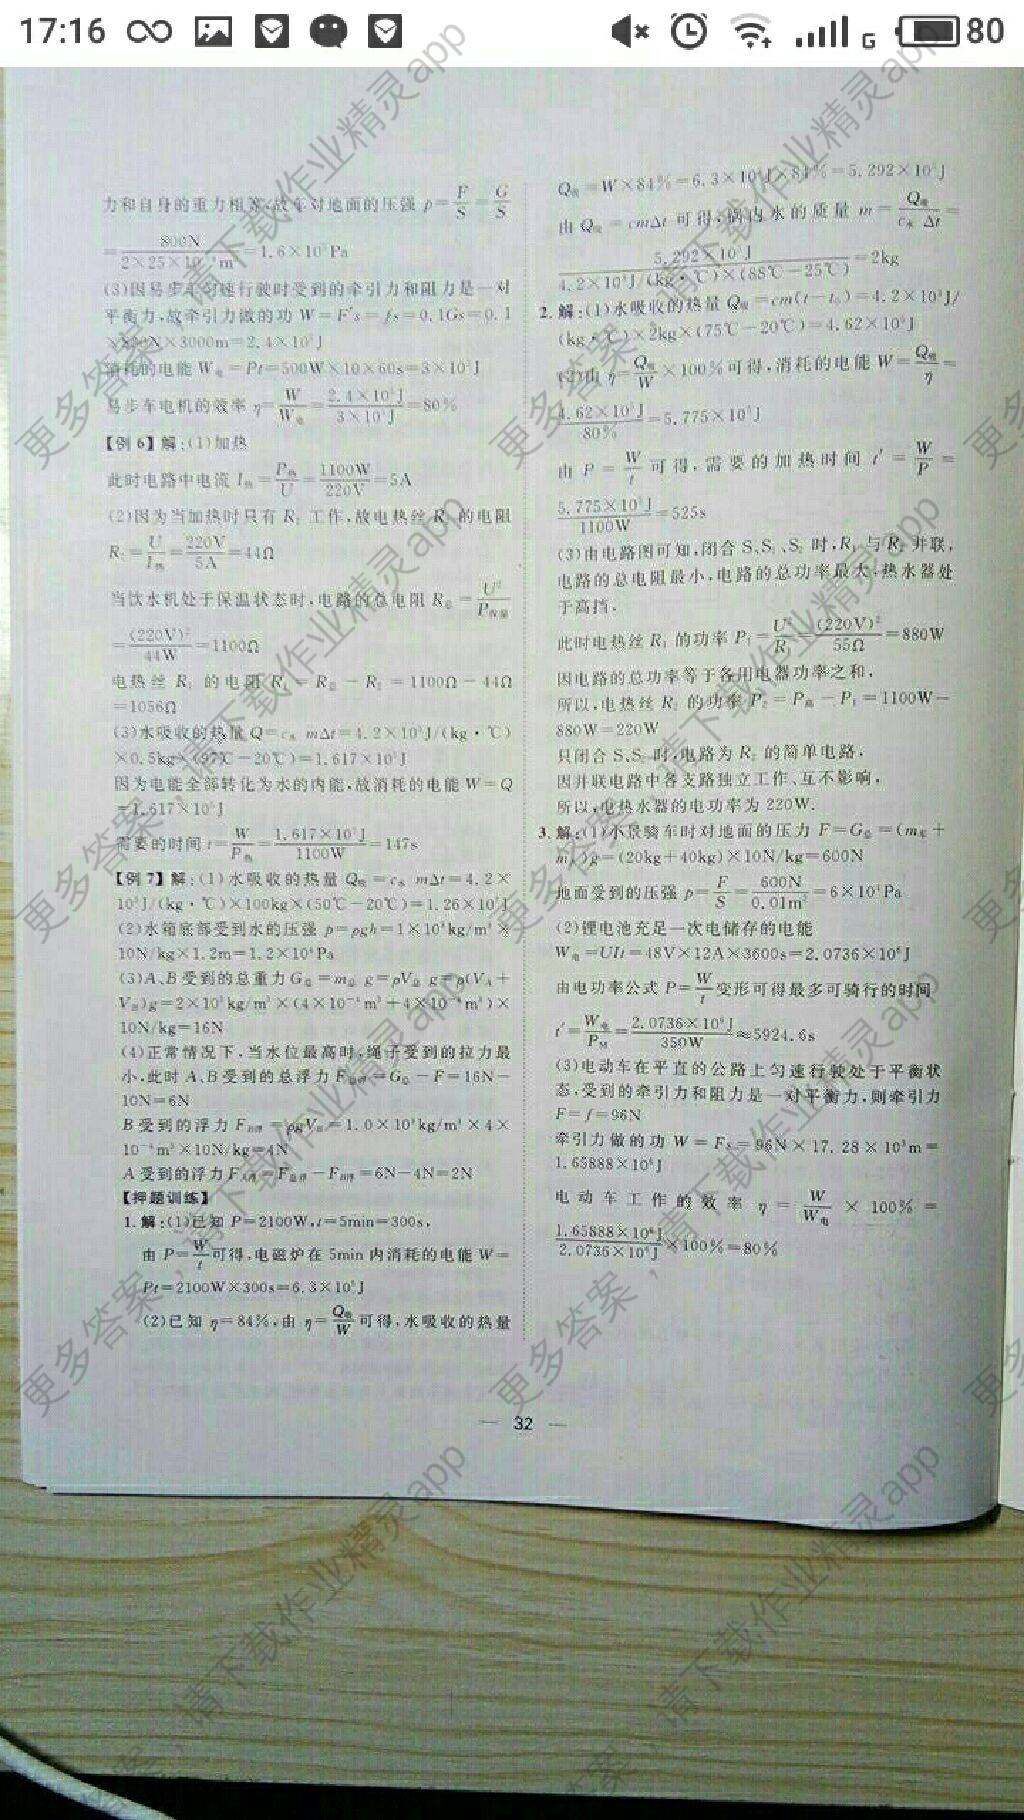 17:16
G
80
力和自身的重力相等,故车对地面的压强 p=F/S=G/S
=800N/2×25×10 m =1.6×10 Pa
(3)因易步车匀速行驶时受到的牵引力和阻力是一对
平衡力,故牵引力做的功 W=F's=fs=0.1Gs=0.1
×800N×3000m=2.4×10⁵J
消耗的电能 W电=Pt=500W×10×60s=3×10⁵J
易步车电机的效率 η=W/W电=2.4×10⁵J/3×10⁵J=80%
【例6】解:(1)加热
此时电路中电流 I热=P热/U=1100W/220V=5A
(2)因为当加热时只有 R₂ 工作,故电热丝 R₂ 的电阻
R₂=U/I热=220V/5A=44Ω
当饮水机处于保温状态时,电路的总电阻 R总=U²/P保温
=(220V)²/44W=1100Ω
电热丝 R₁ 的电阻 R₁=R总-R₂=1100Ω-44Ω
=1056Ω
(3)水吸收的热量 Q=c水mΔt=4.2×10³J/(kg·℃)
×0.5kg×(97℃-20℃)=1.617×10⁵J
因为电能全部转化为水的内能,故消耗的电能 W=Q
=1.617×10⁵J
需要的时间 t=W/P热=1.617×10⁵J/1100W=147s
【例7】解:(1)水吸收的热量 Q吸=c水mΔt=4.2×
10³J/(kg·℃)×100kg×(50℃-20℃)=1.26×10⁷J
(2)水箱底部受到水的压强 p=ρgh=1×10³kg/m³×
10N/kg×1.2m=1.2×10⁴Pa
(3)A、B受到的总重力 G总=m总g=ρV总g=ρ(VA+
VB)g=2×10³kg/m³×(4×10⁻⁴m³+4×10⁻⁴m³)×
10N/kg=16N
(4)正常情况下,当水位最高时,绳子受到的拉力最
小,此时 A、B受到的总浮力 F总浮=G总-F=16N-
10N=6N
B受到的浮力 FB浮=ρgVB=1.0×10³kg/m³×4×
10⁻⁴m³×10N/kg=4N
A受到的浮力 FA浮=F总浮-FB浮=6N-4N=2N
【押题训练】
1.解:(1)已知 P=2100W,t=5min=300s,
由 P=W/t 可得,电磁炉在 5min 内消耗的电能 W=
Pt=2100W×300s=6.3×10⁵J
(2)已知 η=84%,由 η=Q吸/W 可得,水吸收的热量
Q吸=W×84%=6.3×10⁵J×84%=5.292×10⁵J
由 Q吸=cmΔt 可得,锅内水的质量 m=Q吸/c水Δt=
5.292×10⁵J/4.2×10³J/(kg·℃)×(88℃-25℃)=2kg
2.解:(1)水吸收的热量 Q吸=cm(t-t₀)=4.2×10³J/
(kg·℃)×2kg×(75℃-20℃)=4.62×10⁵J
(2)由 η=Q吸/W×100%可得,消耗的电能 W=Q吸/η=
4.62×10⁵J/80%=5.775×10⁵J
由 P=W/t 可得,需要的加热时间 t'=W/P=
5.775×10⁵J/1100W=525s
(3)由电路图可知,闭合 S、S₁、S₂ 时,R₁ 与 R₂ 并联,
电路的总电阻最小,电路的总功率最大,热水器处
于高挡.
此时电热丝 R₁ 的功率 P₁=U²/R₁=(220V)²/55Ω=880W
因电路的总功率等于各用电器功率之和,
所以,电热丝 R₂ 的功率 P₂=P高-P₁=1100W-
880W=220W
只闭合 S、S 时,电路为 R₂ 的简单电路,
因并联电路中各支路独立工作、互不影响,
所以,电热水器的电功率为 220W.
3.解:(1)小景骑车时对地面的压力 F=G总=(m车+
m人)g=(20kg+40kg)×10N/kg=600N
地面受到的压强 p=F/S=600N/0.01m²=6×10⁴Pa
(2)锂电池充足一次电储存的电能
W电=UIt=48V×12A×3600s=2.0736×10⁶J
由电功率公式 P=W/t 变形可得最多可骑行的时间
t'=W电/P额=2.0736×10⁶J/350W≈5924.6s
(3)电动车在平直的公路上匀速行驶处于平衡状
态,受到的牵引力和阻力是一对平衡力,则牵引力
F=f=96N
牵引力做的功 W=Fs=96N×17.28×10³m=
1.65888×10⁶J
电动车工作的效率 η=W/W电×100%=
1.65888×10⁶J/2.0736×10⁶J×100%=80%
— 32 —
更多答案,请下载作业精灵app